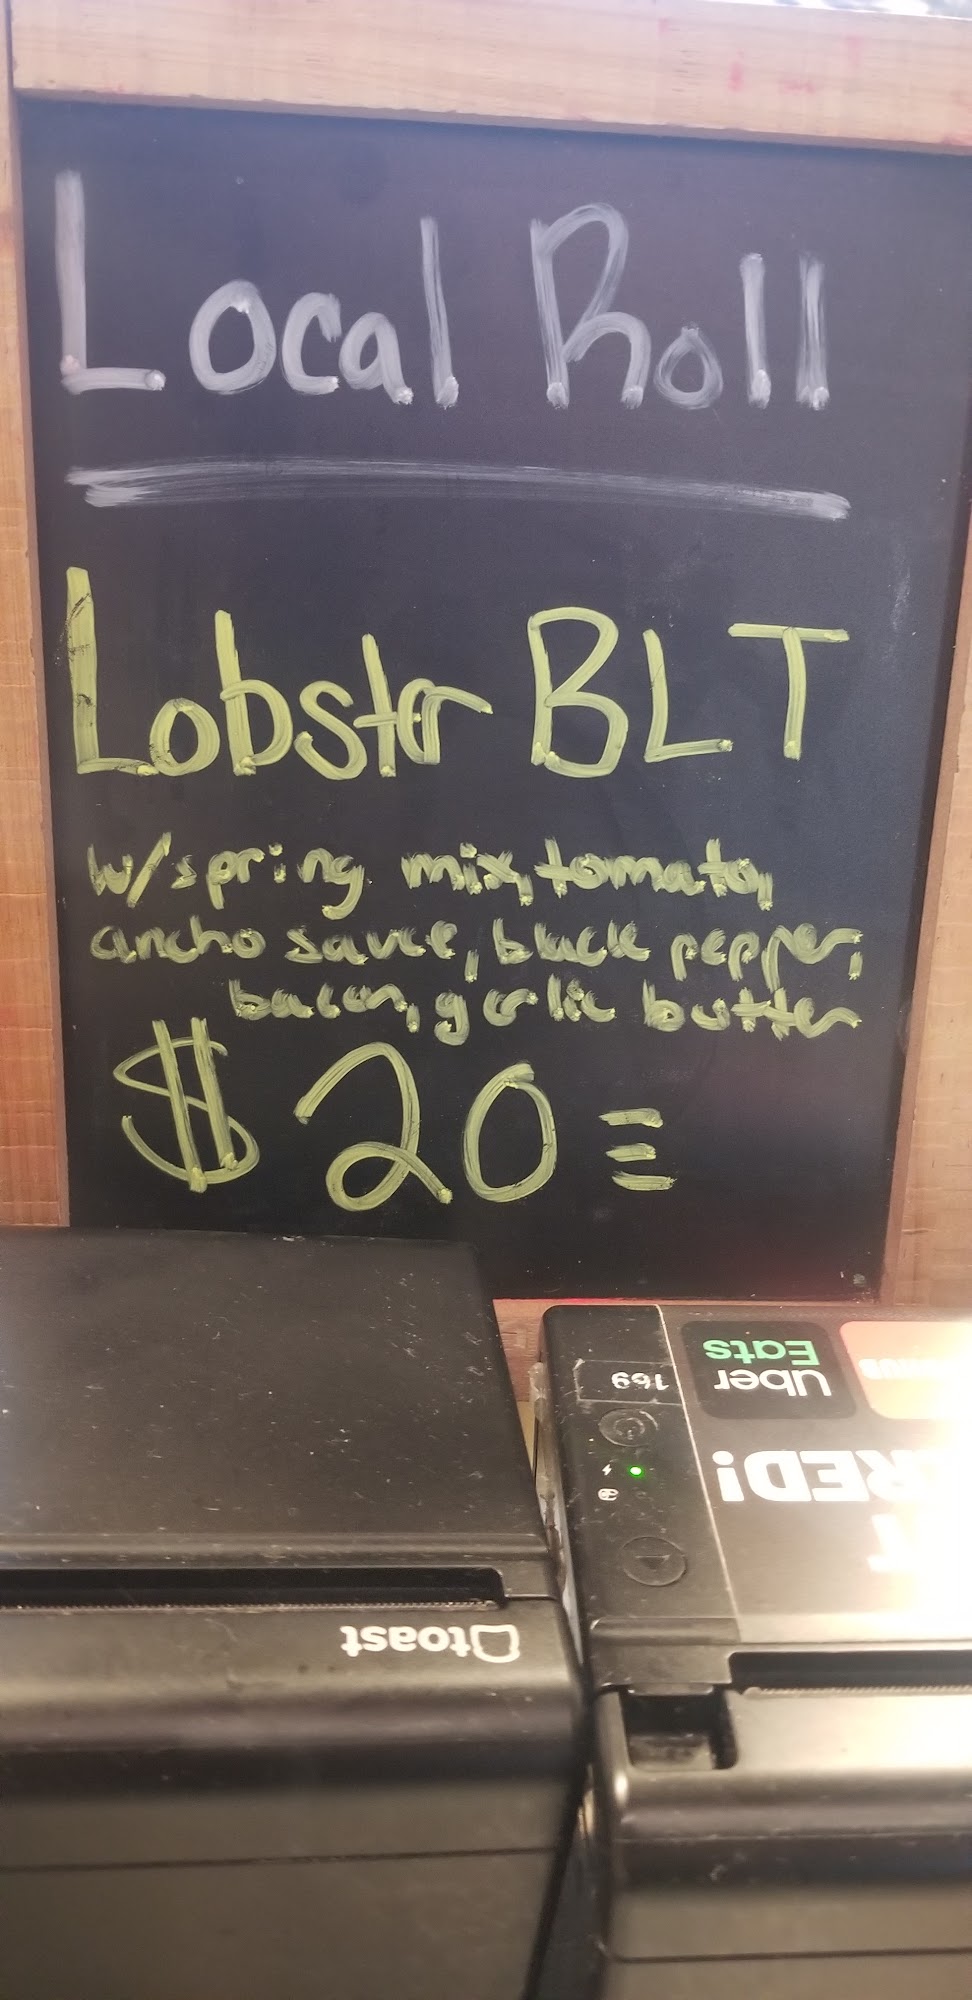 Local Roll
Lobster BLT
w/spring mix, tomato,
ancho sauce, black pepper,
bacon, garlic butter
$20
169
Uber
Eats
RED!
toast